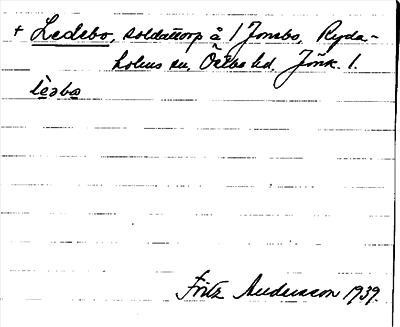 + Ledebo, soldattorp å 1 Jonsbo, Ryda-
holms sn, Östbo hd, Jönk. l.
lèəbo
Fritz Andersson 1939.